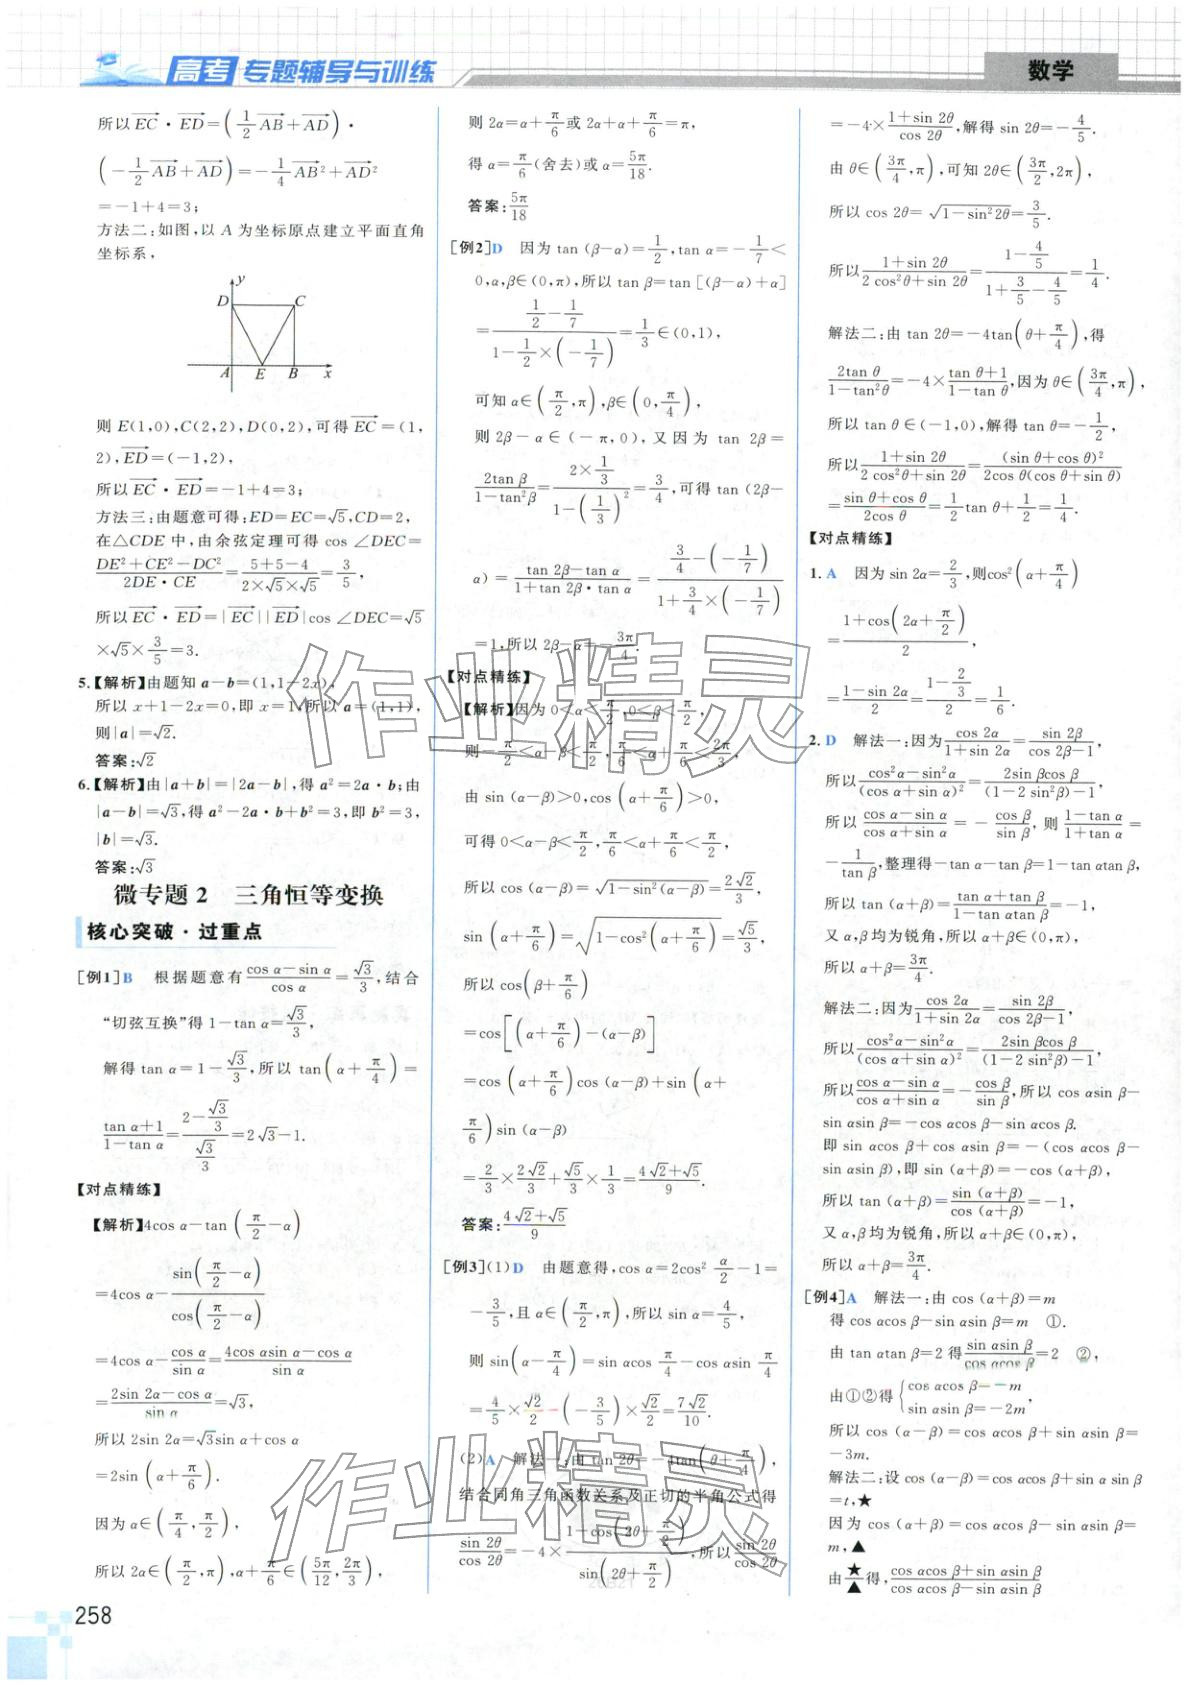 高考 专题辅导与训练
数学
所以$\overrightarrow{EC}\cdot\overrightarrow{ED}=\left(\frac{1}{2}\overrightarrow{AB}+\overrightarrow{AD}\right)\cdot$
$\left(-\frac{1}{2}\overrightarrow{AB}+\overrightarrow{AD}\right)=-\frac{1}{4}\overrightarrow{AB}^2+\overrightarrow{AD}^2$
=-1+4=3;
方法二:如图,以A为坐标原点建立平面直角
坐标系,
y
D C
A E B x
则E(1,0),C(2,2),D(0,2),可得$\overrightarrow{EC}$=(1,
2),$\overrightarrow{ED}$=(-1,2),
所以$\overrightarrow{EC}\cdot\overrightarrow{ED}$=-1+4=3;
方法三:由题意可得:ED=EC=√5,CD=2,
在△CDE中,由余弦定理可得cos∠DEC=
$\frac{DE^2+CE^2-DC^2}{2DE\cdot CE}=\frac{5+5-4}{2×√5×√5}=\frac{3}{5}$,
所以$\overrightarrow{EC}\cdot\overrightarrow{ED}=|\overrightarrow{EC}||\overrightarrow{ED}|$cos∠DEC=√5
×√5×$\frac{3}{5}$=3.
5.【解析】由题知a-b=(1,1-2x),
所以x+1-2x=0,即x=1,所以a=(1,1),
则|a|=√2.
答案:√2
6.【解析】由|a+b|=|2a-b|,得a²=2a·b;由
|a-b|=√3,得a²-2a·b+b²=3,即b²=3,
|b|=√3.
答案:√3
微专题2 三角恒等变换
核心突破·过重点
[例1]B 根据题意有$\frac{cos α-sin α}{cos α}=\frac{√3}{3}$,结合
“切弦互换”得1-tan α=$\frac{√3}{3}$,
解得tan α=1-$\frac{√3}{3}$,所以tan$\left(α+\frac{π}{4}\right)$=
$\frac{tan α+1}{1-tan α}=\frac{2-\frac{√3}{3}}{\frac{√3}{3}}$=2√3-1.
【对点精练】
【解析】4cos α-tan$\left(\frac{π}{2}-α\right)$
=4cos α-$\frac{sin\left(\frac{π}{2}-α\right)}{cos\left(\frac{π}{2}-α\right)}$
=4cos α-$\frac{cos α}{sin α}=\frac{4cos αsin α-cos α}{sin α}$
=$\frac{2sin 2α-cos α}{sin α}$=√3,
所以2sin 2α=√3sin α+cos α
=2sin$\left(α+\frac{π}{6}\right)$
因为α∈$\left(\frac{π}{4},\frac{π}{2}\right)$,
所以2α∈$\left(\frac{π}{2},π\right)$,α+$\frac{π}{6}$∈$\left(\frac{5π}{12},\frac{2π}{3}\right)$,
则2α=α+$\frac{π}{6}$或2α+α+$\frac{π}{6}$=π,
得α=$\frac{π}{6}$(舍去)或α=$\frac{5π}{18}$.
答案:$\frac{5π}{18}$
[例2]D 因为tan(β-α)=$\frac{1}{2}$,tan α=-$\frac{1}{7}$<
0,α,β∈(0,π),所以tan β=tan[(β-α)+α]
=$\frac{\frac{1}{2}-\frac{1}{7}}{1-\frac{1}{2}×\left(-\frac{1}{7}\right)}=\frac{1}{3}$∈(0,1),
可知α∈$\left(\frac{π}{2},π\right)$,β∈$\left(0,\frac{π}{4}\right)$,
则2β-α∈(-π,0),又因为tan 2β=
$\frac{2tan β}{1-tan^2β}=\frac{2×\frac{1}{3}}{1-\left(\frac{1}{3}\right)^2}=\frac{3}{4}$,可得tan(2β-
α)=$\frac{tan 2β-tan α}{1+tan 2β·tan α}=\frac{\frac{3}{4}-\left(-\frac{1}{7}\right)}{1+\frac{3}{4}×\left(-\frac{1}{7}\right)}$
=1,所以2β-α=-$\frac{3π}{4}$.
【对点精练】
【解析】因为0<α<$\frac{π}{2}$,0<β<$\frac{π}{2}$,
则-$\frac{π}{2}$<α-β<$\frac{π}{2}$,$\frac{π}{6}$<α+$\frac{π}{6}$<$\frac{2π}{3}$,
由sin(α-β)>0,cos$\left(α+\frac{π}{6}\right)$>0,
可得0<α-β<$\frac{π}{2}$,$\frac{π}{6}$<α+$\frac{π}{6}$<$\frac{π}{2}$,
所以cos(α-β)=$\sqrt{1-sin^2(α-β)}=\frac{2√2}{3}$,
sin$\left(α+\frac{π}{6}\right)=\sqrt{1-cos^2\left(α+\frac{π}{6}\right)}=\frac{√5}{3}$,
所以cos$\left(β+\frac{π}{6}\right)$
=cos$\left[\left(α+\frac{π}{6}\right)-(α-β)\right]$
=cos$\left(α+\frac{π}{6}\right)$cos(α-β)+sin$\left(α+\right.$
$\left.\frac{π}{6}\right)$sin(α-β)
=$\frac{2}{3}×\frac{2√2}{3}+\frac{√5}{3}×\frac{1}{3}=\frac{4√2+√5}{9}$.
答案:$\frac{4√2+√5}{9}$
[例3](1)D 由题意得,cos α=2cos²$\frac{α}{2}$-1=
-$\frac{3}{5}$,且α∈$\left(\frac{π}{2},π\right)$,所以sin α=$\frac{4}{5}$,
则sin$\left(α-\frac{π}{4}\right)$=sin αcos$\frac{π}{4}$-cos αsin$\frac{π}{4}$
=$\frac{4}{5}×\frac{√2}{2}-\left(-\frac{3}{5}\right)×\frac{√2}{2}=\frac{7√2}{10}$.
(2)A 解法一:由tan 2θ=-4tan$\left(θ+\frac{π}{4}\right)$,
结合同角三角函数关系及正切的半角公式得
$\frac{sin 2θ}{cos 2θ}=-4×\frac{1-cos\left(2θ+\frac{π}{2}\right)}{sin\left(2θ+\frac{π}{2}\right)}$,所以$\frac{sin 2θ}{cos 2θ}$
=-4×$\frac{1+sin 2θ}{cos 2θ}$,解得sin 2θ=-$\frac{4}{5}$.
由θ∈$\left(\frac{3π}{4},π\right)$,可知2θ∈$\left(\frac{3π}{2},2π\right)$,
所以cos 2θ=$\sqrt{1-sin^22θ}=\frac{3}{5}$.
所以$\frac{1+sin 2θ}{2cos^2θ+sin 2θ}=\frac{1-\frac{4}{5}}{1+\frac{3}{5}-\frac{4}{5}}=\frac{1}{4}$.
解法二:由tan 2θ=-4tan$\left(θ+\frac{π}{4}\right)$,得
$\frac{2tan θ}{1-tan^2θ}=-4×\frac{tan θ+1}{1-tan θ}$,因为θ∈$\left(\frac{3π}{4},π\right)$,
所以tan θ∈(-1,0),解得tan θ=-$\frac{1}{2}$,
所以$\frac{1+sin 2θ}{2cos^2θ+sin 2θ}=\frac{(sin θ+cos θ)^2}{2cos θ(cos θ+sin θ)}$
=$\frac{sin θ+cos θ}{2cos θ}=\frac{1}{2}$tan θ+$\frac{1}{2}=\frac{1}{4}$.
【对点精练】
1.A 因为sin 2α=$\frac{2}{3}$,则cos²$\left(α+\frac{π}{4}\right)$
=$\frac{1+cos\left(2α+\frac{π}{2}\right)}{2}$,
=$\frac{1-sin 2α}{2}=\frac{1-\frac{2}{3}}{2}=\frac{1}{6}$.
2.D 解法一:因为$\frac{cos 2α}{1+sin 2α}=\frac{sin 2β}{cos 2β-1}$,
所以$\frac{cos^2α-sin^2α}{(cos α+sin α)^2}=\frac{2sin βcos β}{(1-2sin^2β)-1}$,
所以$\frac{cos α-sin α}{cos α+sin α}=-\frac{cos β}{sin β}$,则$\frac{1-tan α}{1+tan α}$=
-$\frac{1}{tan β}$,整理得-tan α-tan β=1-tan αtan β,
所以tan(α+β)=$\frac{tan α+tan β}{1-tan αtan β}$=-1,
又α,β均为锐角,所以α+β∈(0,π),
所以α+β=$\frac{3π}{4}$.
解法二:因为$\frac{cos 2α}{1+sin 2α}=\frac{sin 2β}{cos 2β-1}$,
所以$\frac{cos^2α-sin^2α}{(cos α+sin α)^2}=\frac{2sin βcos β}{(1-2sin^2β)-1}$,
所以$\frac{cos α-sin α}{cos α+sin α}=-\frac{cos β}{sin β}$,所以cos αsin β-
sin αsin β=-cos αcos β-sin αcos β.
即sin αcos β+cos αsin β=-(cos αcos β-
sin αsin β),即sin(α+β)=-cos(α+β),
所以tan(α+β)=$\frac{sin(α+β)}{cos(α+β)}$=-1,
又α,β均为锐角,所以α+β∈(0,π),
所以α+β=$\frac{3π}{4}$.
[例4]A 解法一:由cos(α+β)=m
得cos αcos β-sin αsin β=m ①.
由tan αtan β=2得$\frac{sin αsin β}{cos αcos β}$=2 ②,
由①②得$\begin{cases}cos αcos β=-m\\sin αsin β=-2m\end{cases}$,
所以cos(α-β)=cos αcos β+sin αsin β=
-3m.
解法二:设cos(α-β)=cos αcos β+sin αsin β
=t,★
因为cos(α+β)=cos αcos β-sin αsin β=
m,▲
由$\frac{★}{▲}$得,$\frac{cos αcos β+sin αsin β}{cos αcos β-sin αsin β}$
作业精灵
作业精灵
258